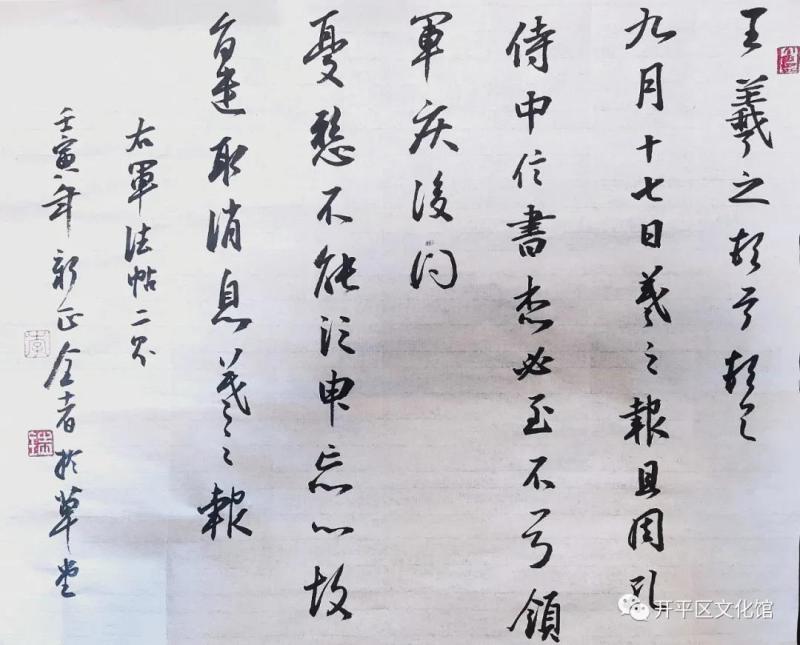 王羲之
九月十七日羲之報且因孔
侍中信書想必至不知領
軍疾後问
憂懸不能須申忘心故
旨遣取消息羲之報
右軍法帖二
壬寅年新正 於草堂
李
开平区文化馆